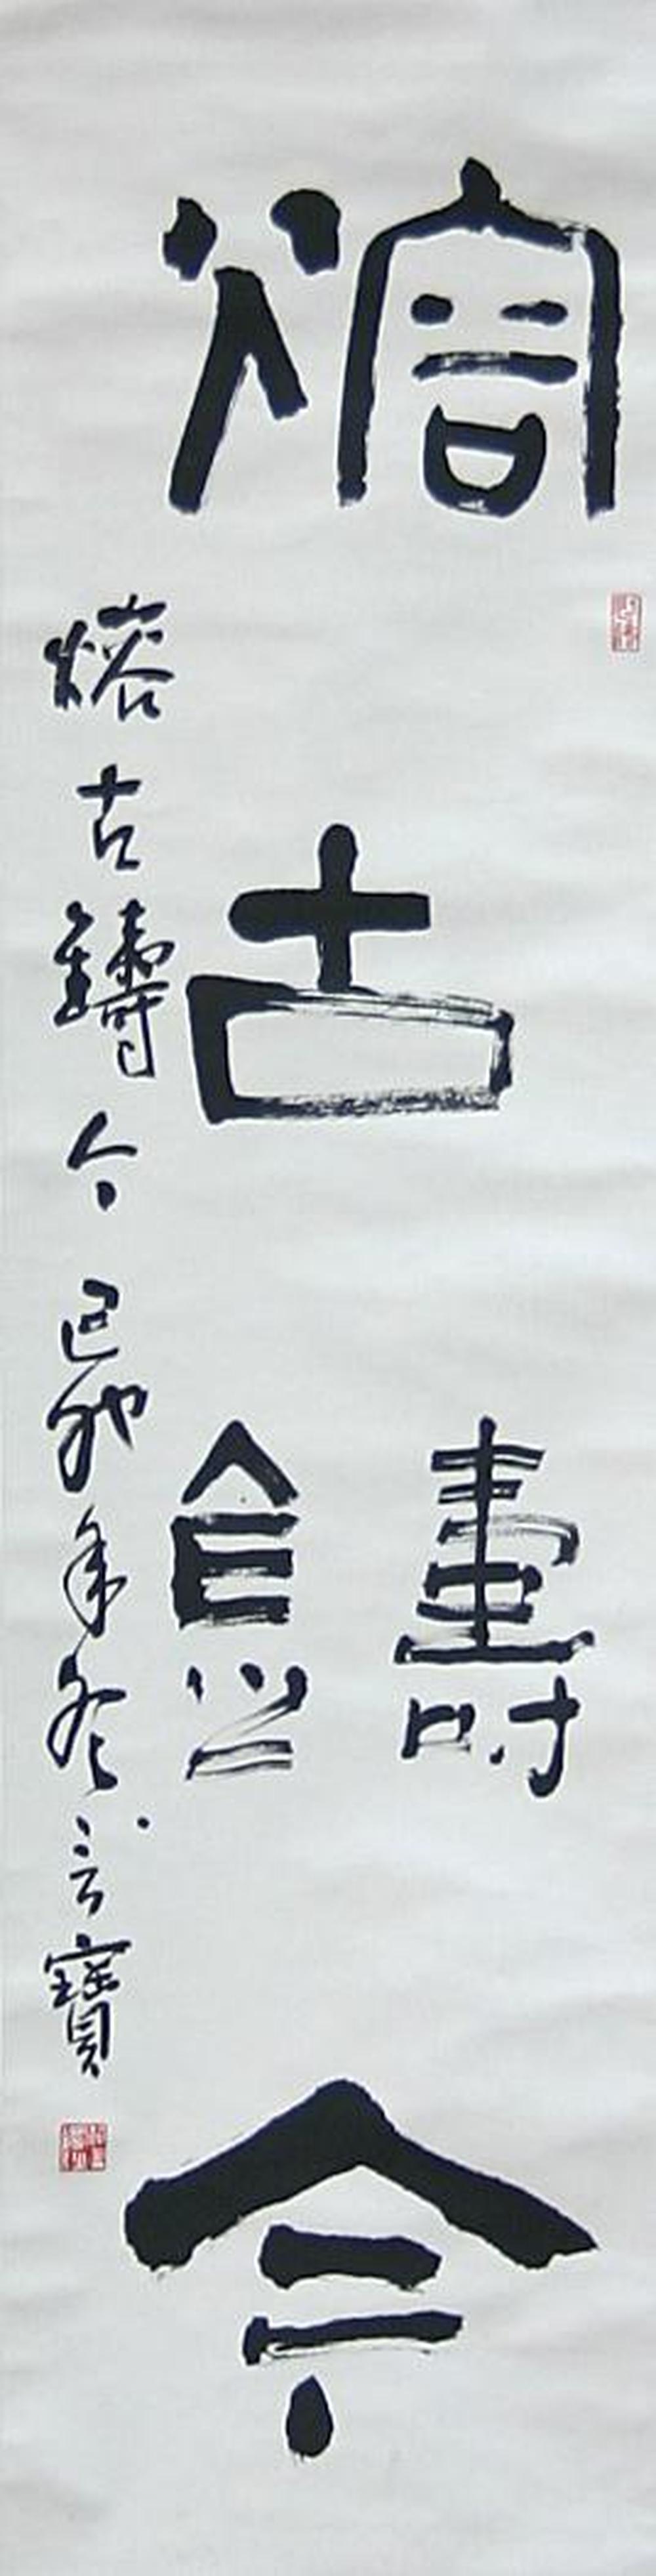 熔古鑄今
熔古鑄今 己卯年冬 言寶